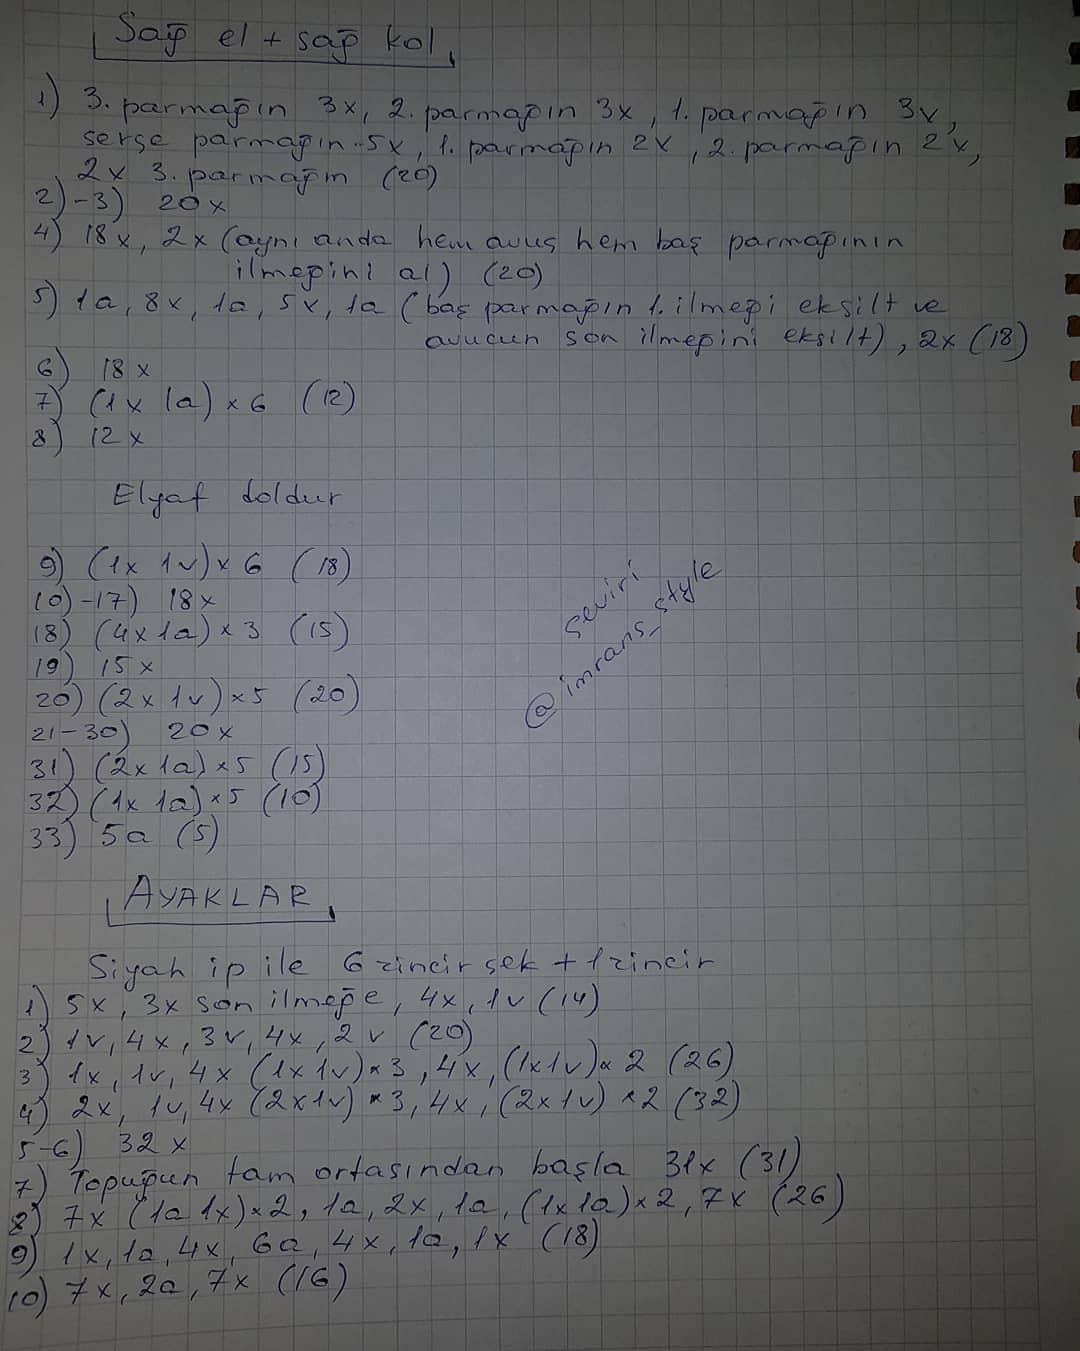 Sağ el + sağ kol
1) 3. parmağın 3x, 2. parmağın 3x, 1. parmağın 3x,
serçe parmağın 5x, 1. parmağın 2x, 2. parmağın 2x,
2x 3. parmağın (20)
2)-3) 20x
4) 18x, 2x (aynı anda hem avuç hem baş parmağının
ilmeğini al) (20)
5) 1a, 8x, 1a, 5x, 1a (baş parmağın 1. ilmeği eksilt ve
avucun son ilmeğini eksilt), 2x (18)
6) 18x
7) (1x 1a) x 6 (12)
8) 12x
Elyaf doldur
9) (1x 1v) x 6 (18)
10)-17) 18x
18) (4x 1a) x 3 (15)
19) 15x
20) (2x 1v) x 5 (20)
21-30) 20x
31) (2x 1a) x 5 (15)
32) (1x 1a) x 5 (10)
33) 5a (5)
çeviri
@imrans_style
AYAKLAR
Siyah ip ile 6 zincir çek + 1 zincir
1) 5x, 3x son ilmeğe, 4x, 1v (14)
2) 1v, 4x, 3v, 4x, 2v (20)
3) 1x, 1v, 4x (1x 1v) x 3, 4x, (1x 1v) x 2 (26)
4) 2x, 1v, 4x (2x 1v) x 3, 4x, (2x 1v) x 2 (32)
5-6) 32x
7) Topuğun tam ortasından başla 31x (31)
8) 7x (1a 1x) x 2, 1a, 2x, 1a, (1x 1a) x 2, 7x (26)
9) 1x, 1a, 4x, 6a, 4x, 1a, 1x (18)
10) 7x, 2a, 7x (16)